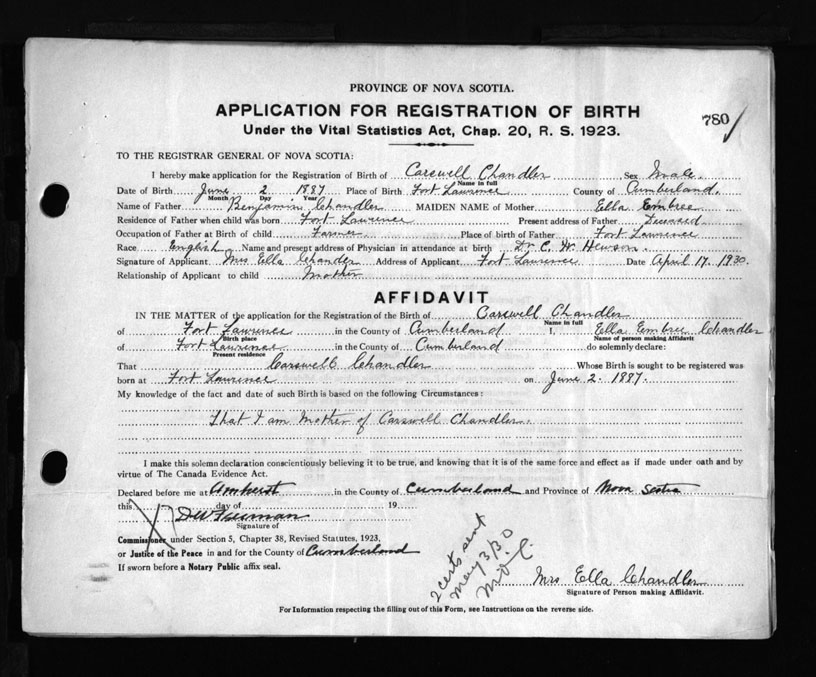 PROVINCE OF NOVA SCOTIA.
APPLICATION FOR REGISTRATION OF BIRTH
780
Under the Vital Statistics Act, Chap. 20, R. S. 1923.
TO THE REGISTRAR GENERAL OF NOVA SCOTIA:
I hereby make application for the Registration of Birth of Carswell Chandler Sex Male
Name in full
Date of Birth June 2 1887 Place of Birth Fort Lawrence County of Cumberland.
Month Day Year
Name of Father Benjamin Chandler MAIDEN NAME of Mother Ella Embree
Residence of Father when child was born Fort Lawrence Present address of Father Deceased
Occupation of Father at Birth of child Farmer Place of birth of Father Fort Lawrence
Race English Name and present address of Physician in attendance at birth Dr C. W. Hewson.
Signature of Applicant Mrs Ella Chandler Address of Applicant Fort Lawrence Date April 17, 1930.
Relationship of Applicant to child Mother
AFFIDAVIT
IN THE MATTER of the application for the Registration of the Birth of Carswell Chandler
Name in full
of Fort Lawrence in the County of Cumberland I, Ella Embree Chandler
Birth place Name of person making Affidavit
of Fort Lawrence in the County of Cumberland do solemnly declare:
Present residence
That Carswell Chandler Whose Birth is sought to be registered was
born at Fort Lawrence on June 2. 1887.
My knowledge of the fact and date of such Birth is based on the following Circumstances:
That I am Mother of Carswell Chandler.
I make this solemn declaration conscientiously believing it to be true, and knowing that it is of the same force and effect as if made under oath and by
virtue of The Canada Evidence Act.
Declared before me at Amherst in the County of Cumberland and Province of Nova Scotia
this day of 19
Signature of
Commissioner under Section 5, Chapter 38, Revised Statutes, 1923,
or Justice of the Peace in and for the County of Cumberland
If sworn before a Notary Public affix seal.
2 certs sent
May 3/30
Mrs Ella Chandler
Signature of Person making Affidavit.
For Information respecting the filling out of this Form, see Instructions on the reverse side.